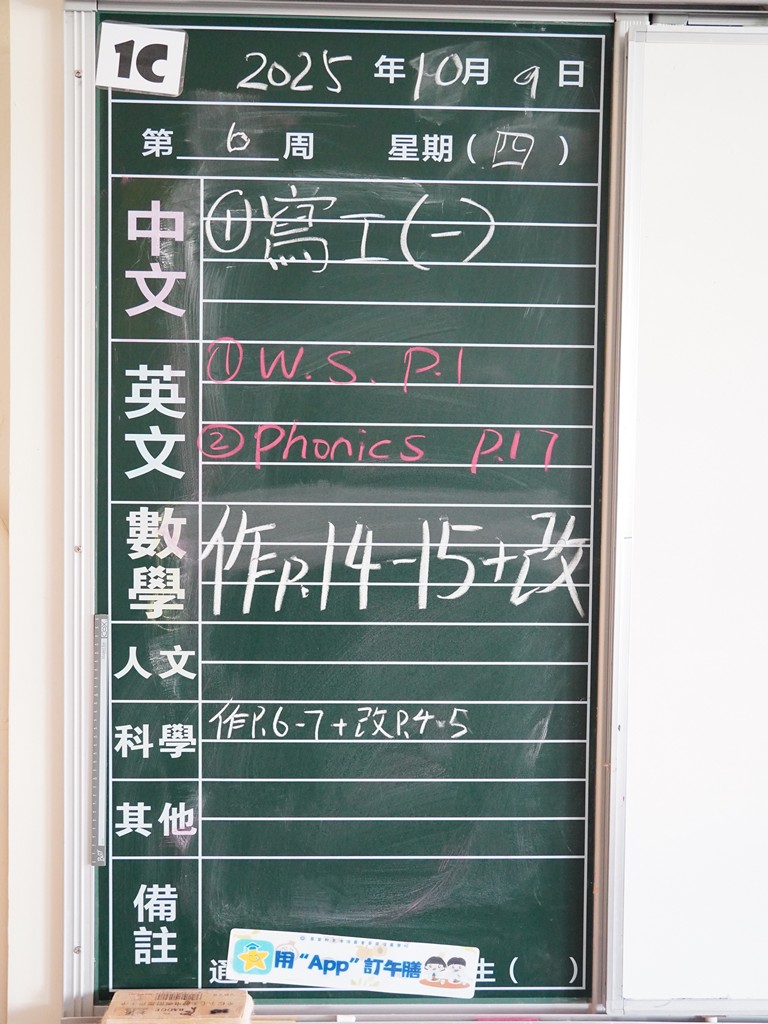 1C
2025年10月9日
第6周 星期(四)
中文
①寫工(一)
英文
①W.S. P.1
②Phonics P.17
數學
作P.14-15+改
人文
科學
作P.6-7+改P.4-5
其他
備註
用“App”訂午膳
通 生( )